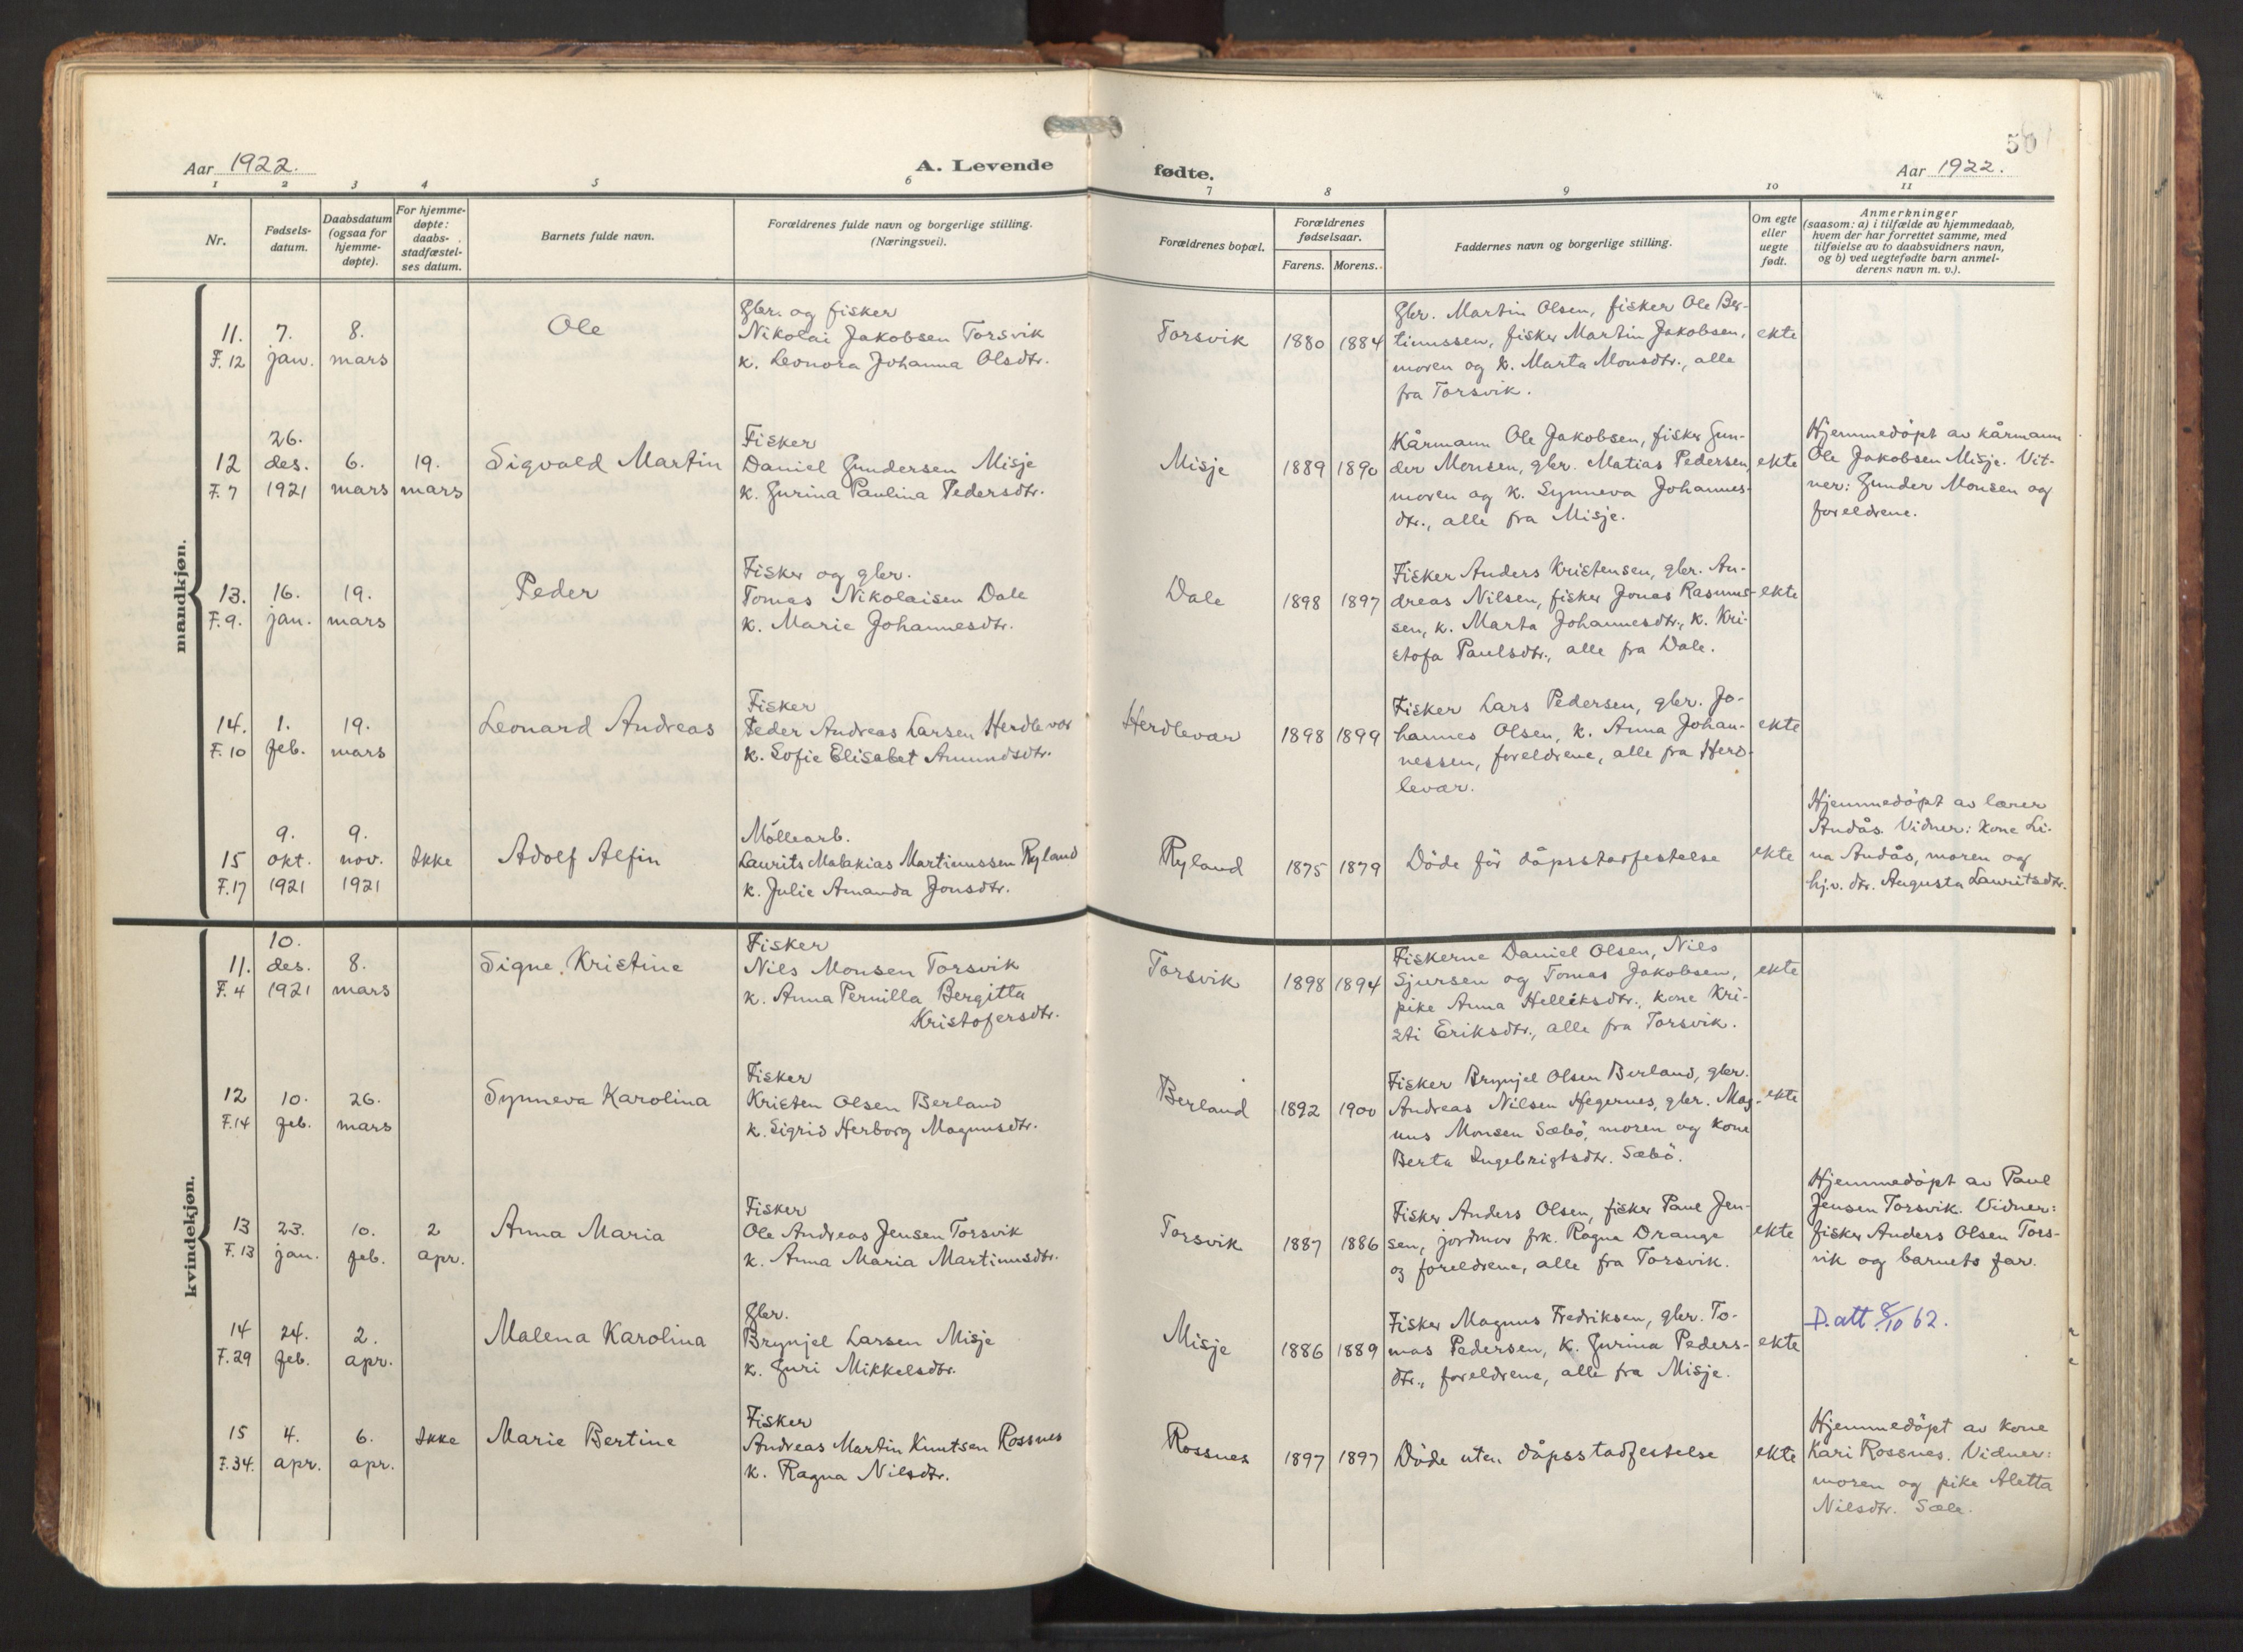 56
Aar 1922.
A. Levende
fødte.
Aar 1922.
1 2 3 4 5 6 7 8 9 10 11
Nr.
Fødsels-
datum.
Daabsdatum
(ogsaa for
hjemme-
døpte).
For hjemme-
døpte:
daabs-
stadfæstel-
ses datum.
Barnets fulde navn.
Forældrenes fulde navn og borgerlige stilling.
(Næringsvei).
Forældrenes bopæl.
Forældrenes
fødselsaar.
Farens. Morens.
Faddernes navn og borgerlige stilling.
Om egte
eller
uegte
født.
Anmerkninger
(saasom: a) i tilfælde av hjemmedaab,
hvem der har forrettet samme, med
tilføielse av to daabsvidners navn,
og b) ved uegtefødte barn anmel-
derens navn m. v.).
mandkjøn.
11.
F. 12
7.
jan.
8.
mars
Ole
Gbr. og fisker
Nikolai Jakobsen Torsvik
k. Leonora Johanna Olsdtr.
Torsvik
1880 1884
Gbr. Martin Olsen, fisker Ole Ber-
tinussen, fisker Martin Jakobsen,
moren og k. Marta Monsdtr., alle
fra Torsvik.
ekte
12
F. 7
26.
des.
1921
6.
mars
19.
mars
Sigvald Martin
Fisker
Daniel Gundersen Misje
k. Gurina Paulina Pedersdtr.
Misje
1889 1890
Kårmann Ole Jakobsen, fisker Gun-
der Monsen, gbr. Matias Pedersen,
moren og k. Synneva Johannes-
dtr., alle fra Misje.
ekte
Hjemmedöpt av kårmann
Ole Jakobsen Misje. Vit-
ner: Gunder Monsen og
foreldrene.
13.
F. 9.
16.
jan.
19.
mars
Peder
Fisker og gbr.
Tomas Nikolaisen Dale
k. Marie Johannesdtr.
Dale
1898 1897
Fisker Anders Kristensen, gbr. An-
dreas Nilsen, fisker Jonas Rasmus-
sen, k. Marta Johannesdtr., k. Kri-
stofa Paulsdtr., alle fra Dale.
ekte
14.
F. 10
1.
feb.
19.
mars
Leonard Andreas
Fisker
Peder Andreas Larsen Herdlevær
k. Sofie Elisabet Amundsdtr.
Herdlevær
1898 1899
Fisker Lars Pedersen, gbr. Jo-
hannes Olsen, k. Anna Johan-
nessen, foreldrene, alle fra Herd-
levær.
ekte
15
F. 17
9.
okt.
1921
9.
nov.
1921
Ikke
Adolf Alfin
Möllearb.
Laurits Malakias Martinussen Ryland
k. Julie Amanda Jonsdtr.
Ryland
1875 1879
Döde för dåpsstadfestelse
ekte
Hjemmedöpt av lærer
Andås. Vidner: kone Li-
na Andås, moren og
hj.v. dtr. Augusta Lauritsdtr.
kvindekjøn.
11.
F. 4
10.
des.
1921
8.
mars
Signe Kristine
Fisker
Nils Monsen Torsvik
k. Anna Pernilla Bergitta
Kristofersdtr.
Torsvik
1898 1894
Fiskerne Daniel Olsen, Nils
Sjursen og Tomas Jakobsen,
pike Anna Helliksdtr., kone Kri-
sti Eriksdtr., alle fra Torsvik.
ekte
12
F. 14
10.
feb.
26.
mars
Synneva Karolina
Fisker
Kristen Olsen Berland
k. Sigrid Herborg Magnusdtr.
Berland
1892 1900
Fisker Brynjel Olsen Berland, gbr.
Andreas Nilsen Hegernes, gbr. Mag-
nus Monsen Sæbö, moren og kone
Berta Ingebrigtsdtr. Sæbö.
ekte
13
F. 13
23.
jan.
10.
feb.
2
apr.
Anna Maria
Fisker
Ole Andreas Jensen Torsvik
k. Anna Maria Martinusdtr.
Torsvik
1887 1886
Fisker Anders Olsen, fisker Paul Jen-
sen, jordmor frk. Ragna Drange
og foreldrene, alle fra Torsvik.
ekte
Hjemmedöpt av Paul
Jensen Torsvik. Vidner:
fisker Anders Olsen Tors-
vik og barnets far.
14
F. 29
24.
feb.
2.
apr.
Malena Karolina
Gbr.
Brynjel Larsen Misje
k. Guri Mikkelsdtr.
Misje
1886 1889
Fisker Magnus Fredriksen, gbr. To-
mas Pedersen, k. Gurina Peders-
dtr., foreldrene, alle fra Misje.
ekte
D. att 8/10 62.
15
F. 34.
4.
apr.
6.
apr.
Ikke
Marie Bertine
Fisker
Andreas Martin Knutsen Rossnes
k. Ragna Nilsdtr.
Rossnes
1897 1897
Döde uten dåpsstadfestelse
ekte
Hjemmedöpt av kone
Kari Rossnes. Vidner:
moren og pike Aletta
Nilsdtr. Sæle.